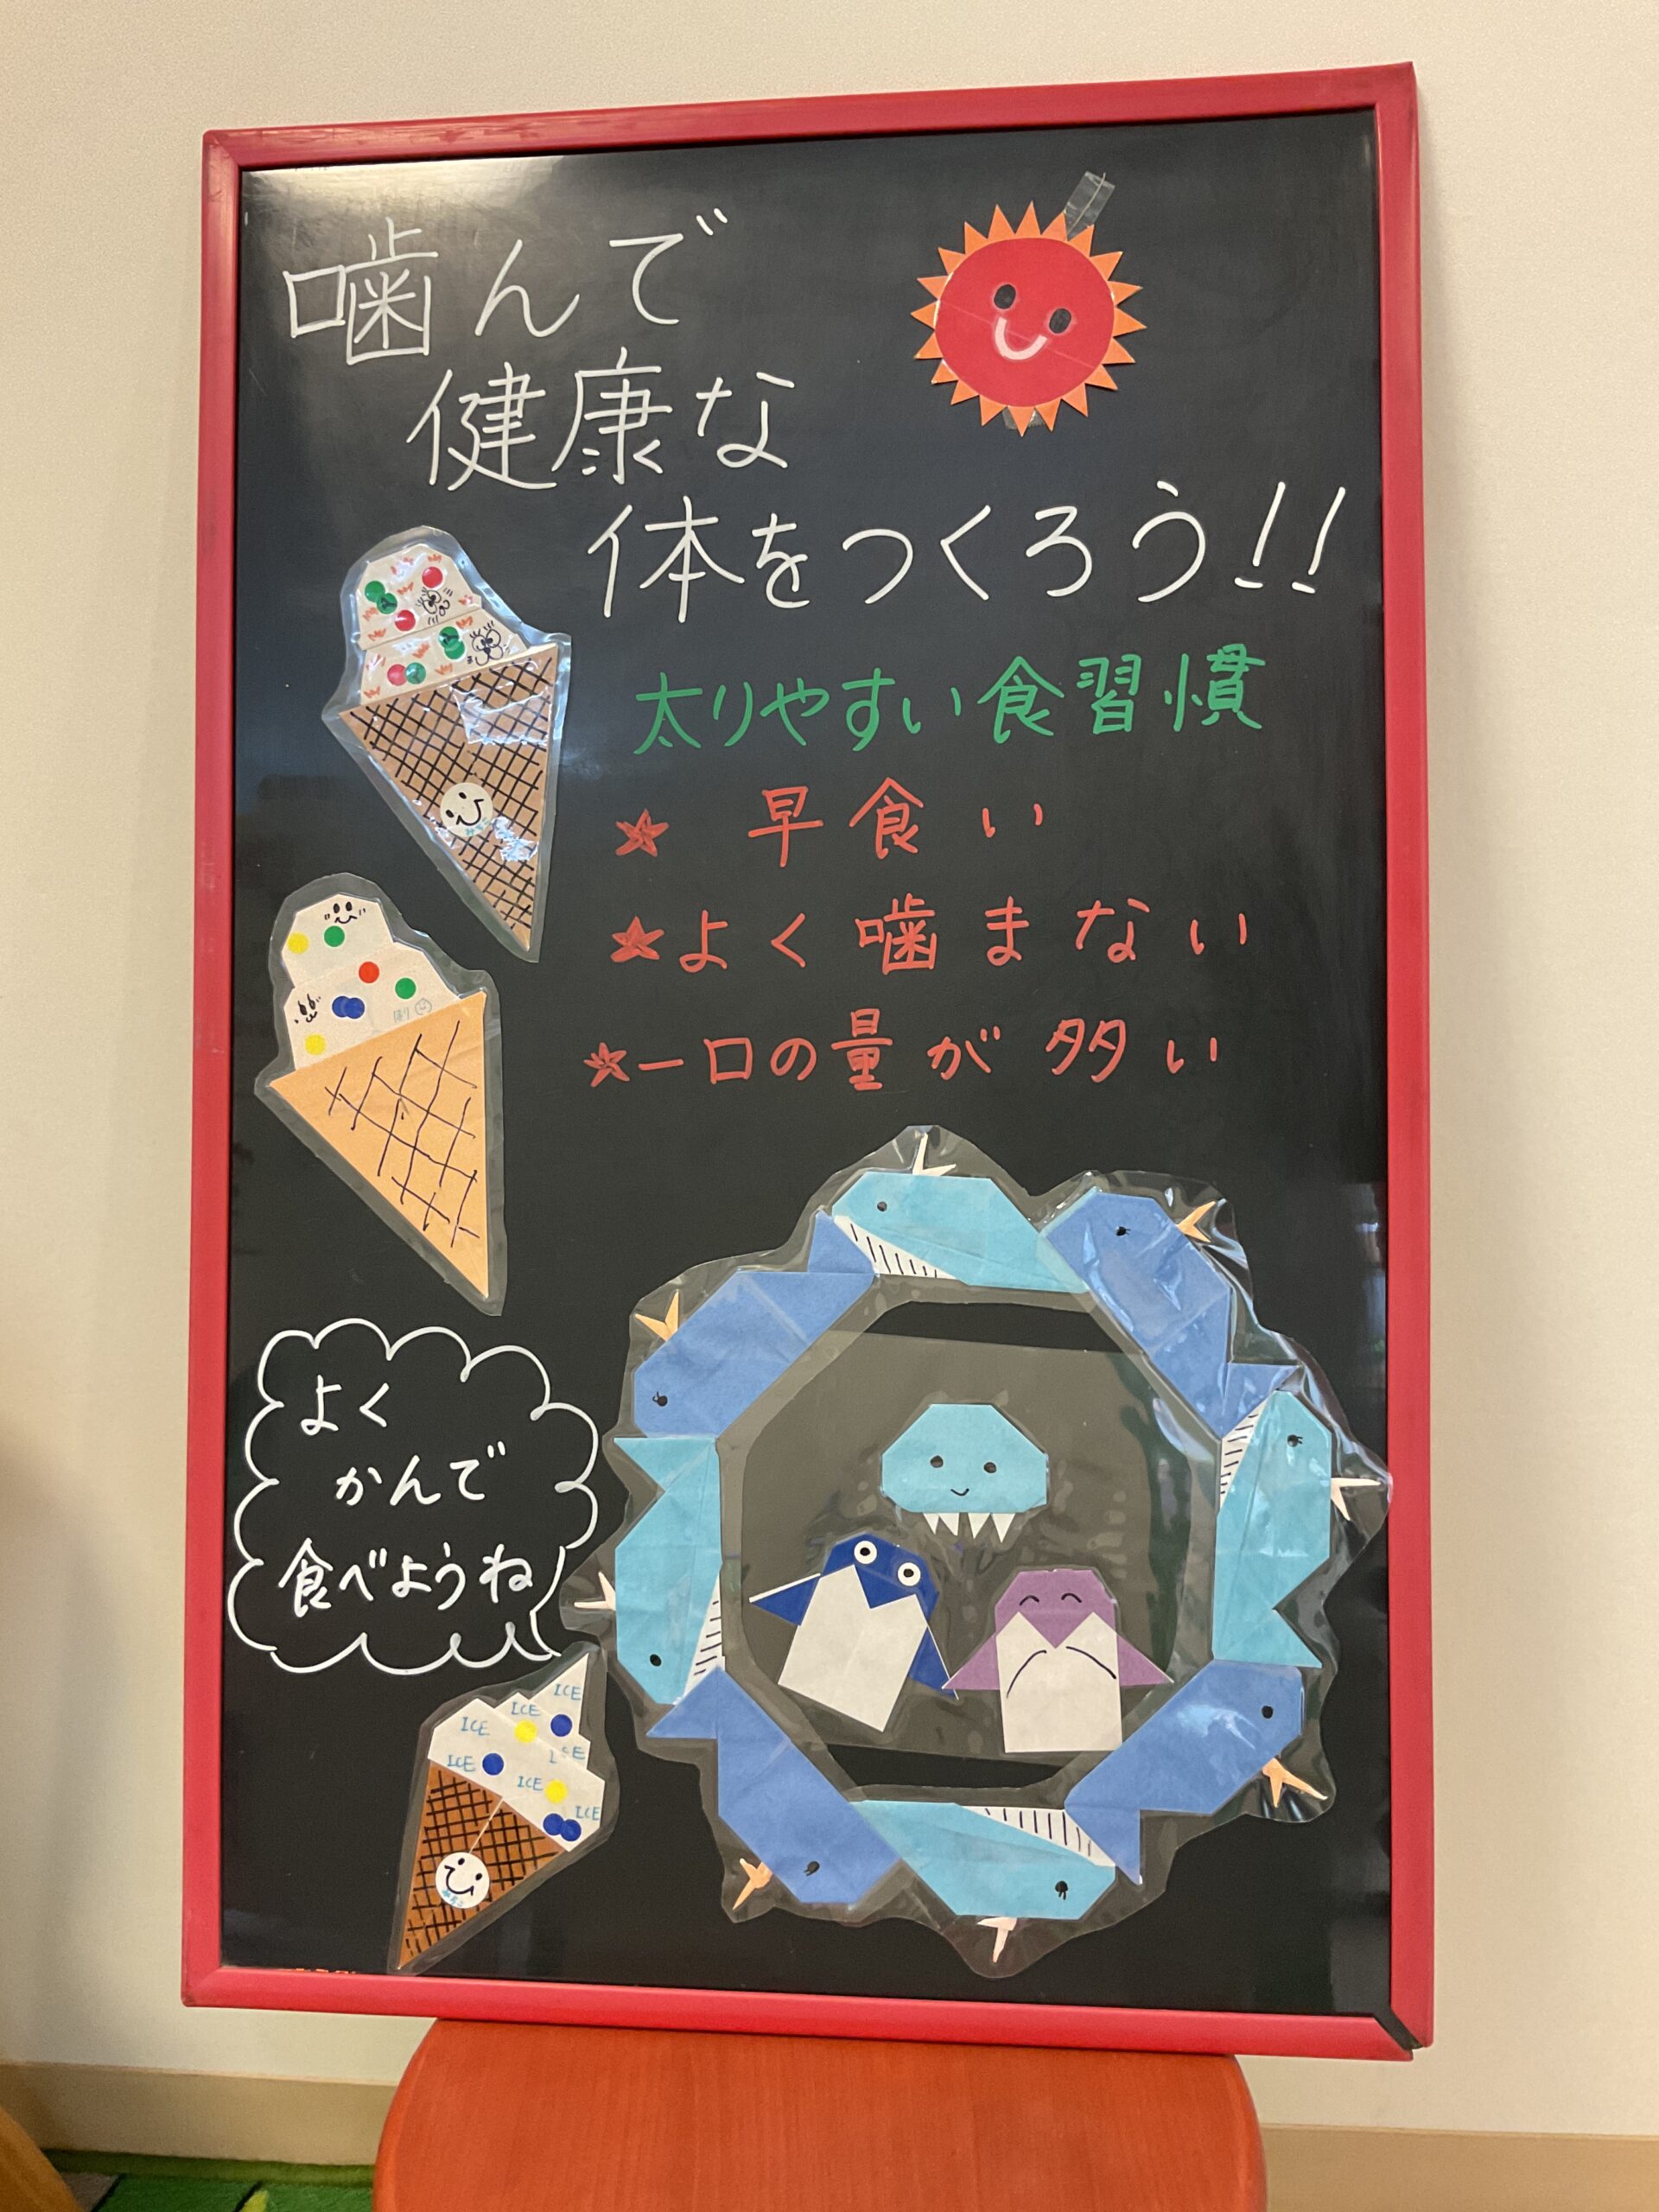 噛んで
健康な
体をつくろう!!
太りやすい食習慣
★ 早食い
★よく噛まない
★一口の量が多い
よく
かんで
食べようね
ICE
ICE
ICE
ICE
ICE
ICE